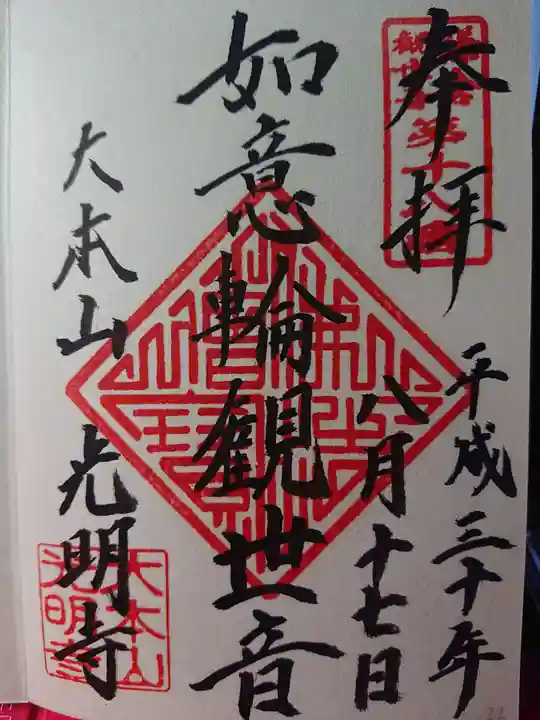 奉拝
平成三十年
八月十七日
如意輪観世音
大本山 光明寺
大本山
光明寺